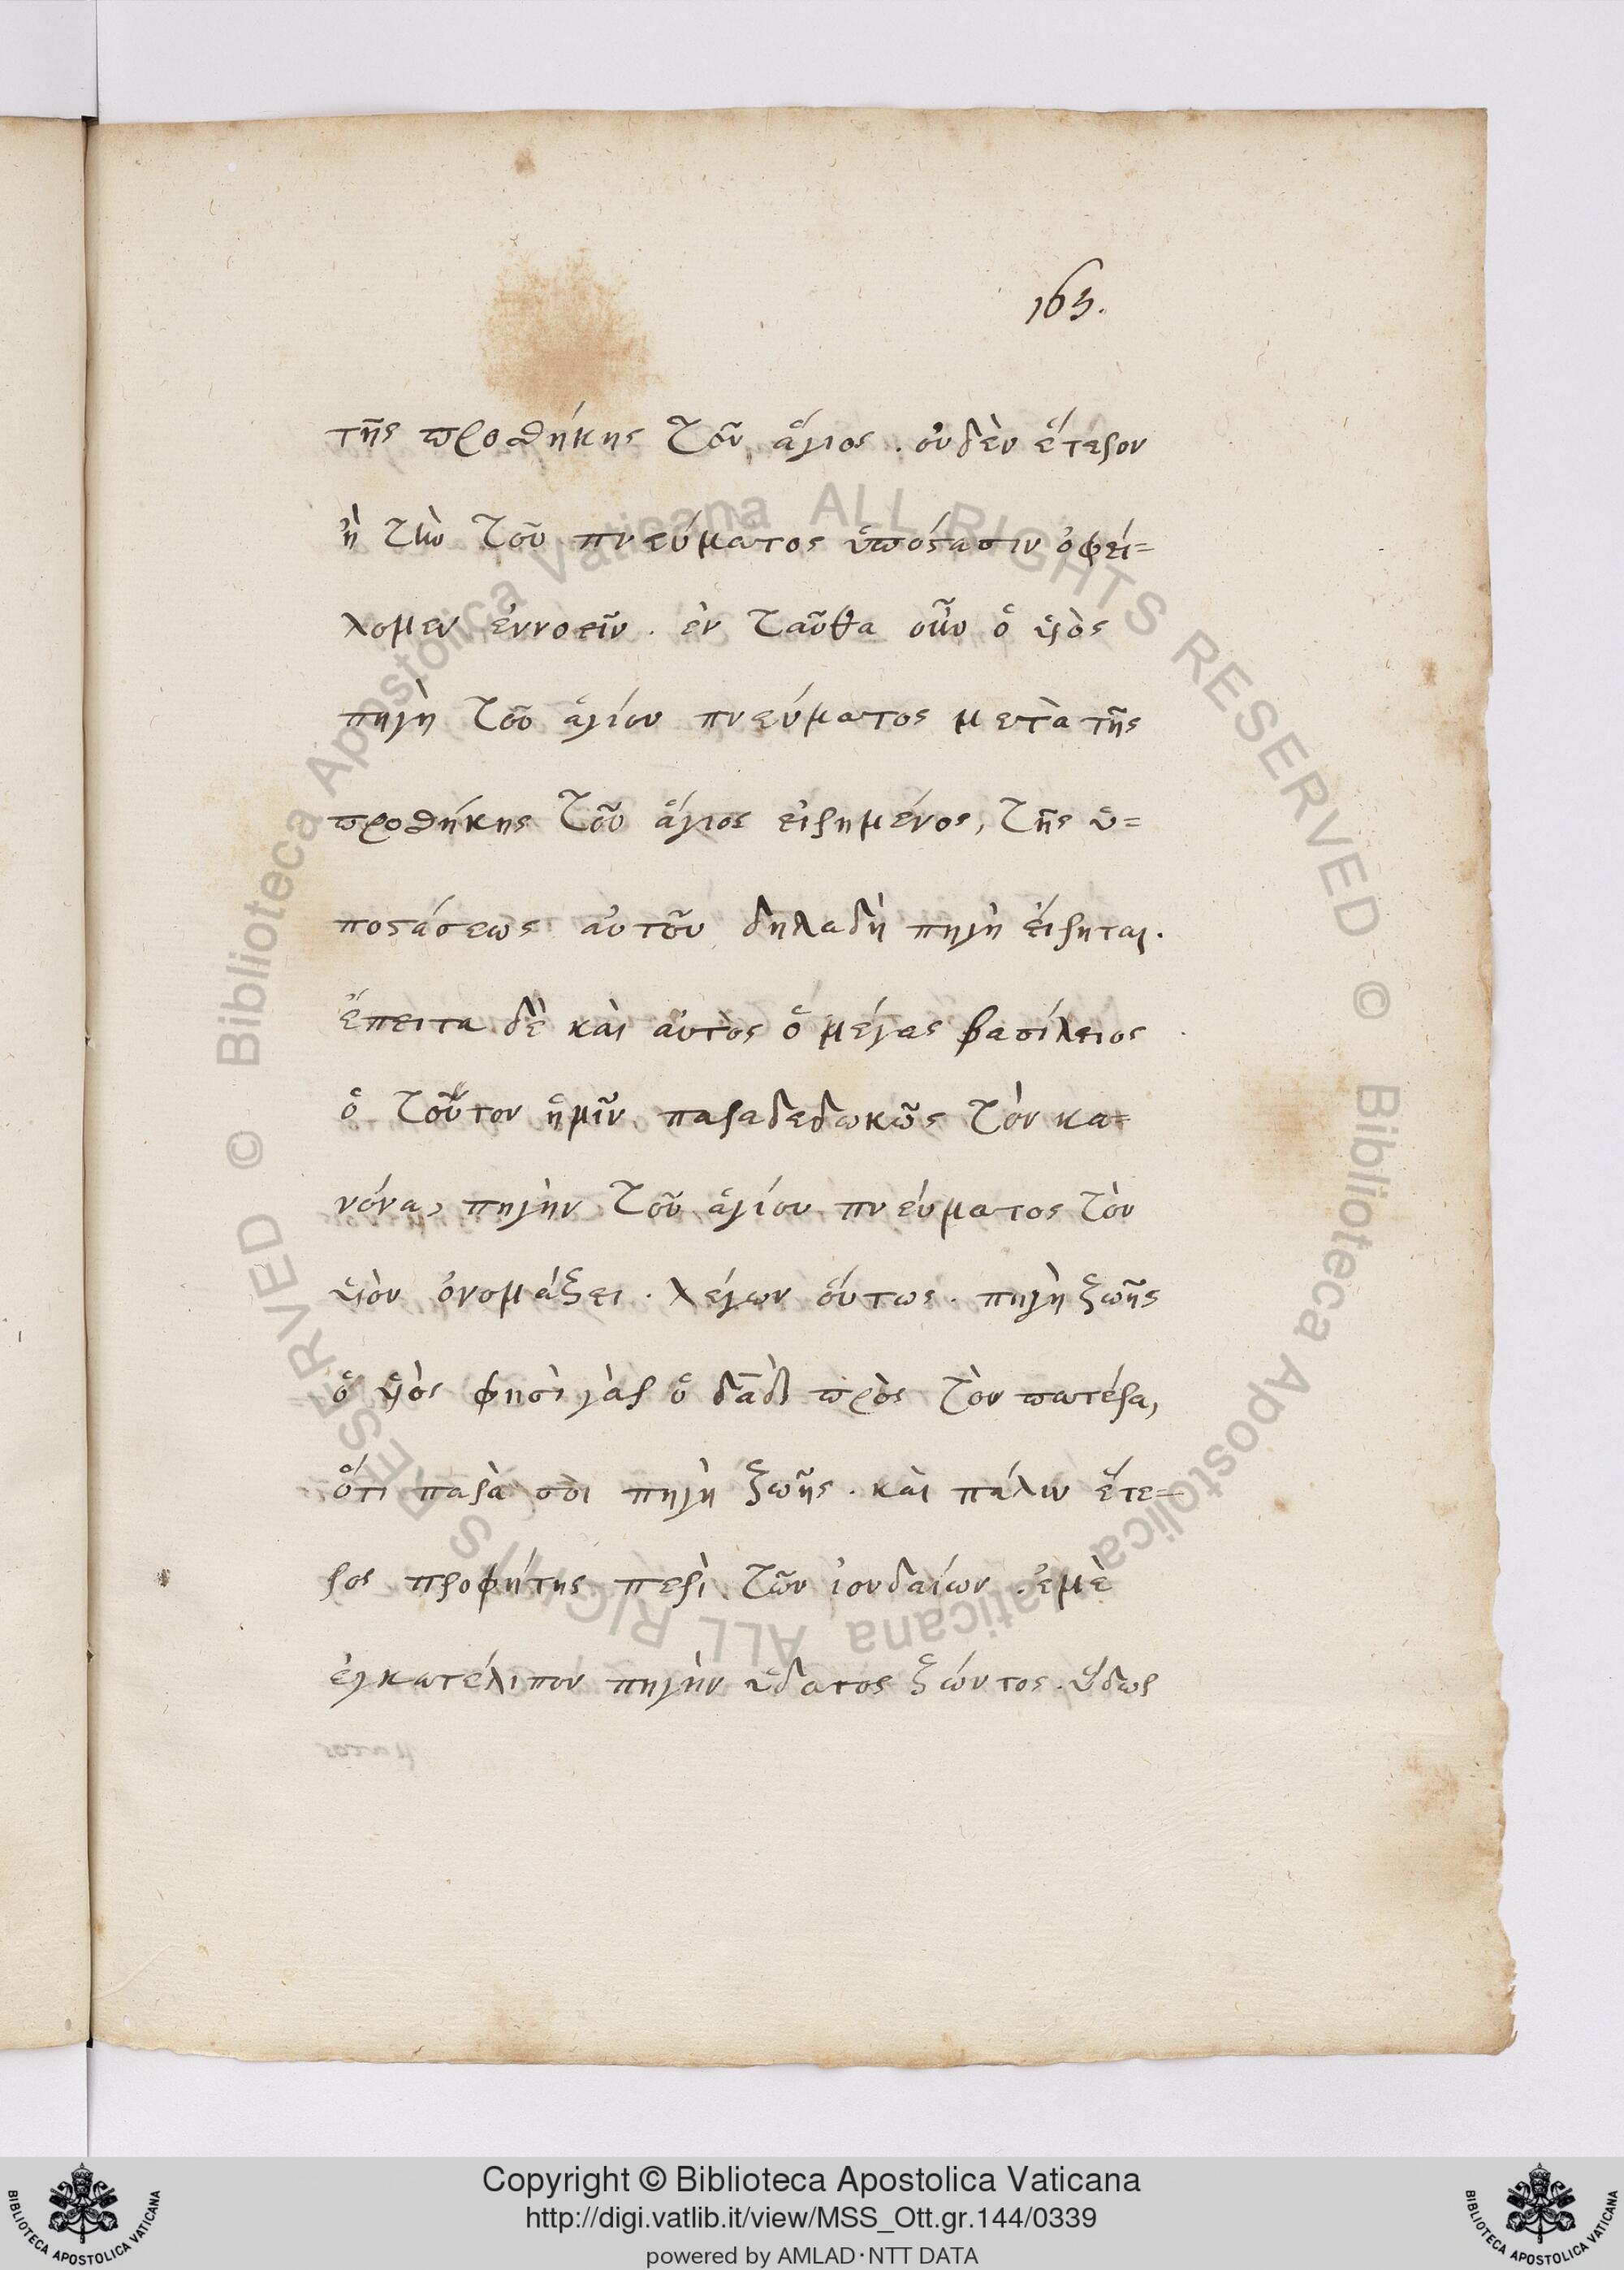 165.
τῆς προθήκης τοῦ ἅγιος. οὐδὲν ἕτερον
ἢ τὴν τοῦ πνεύματος ὑπόστασιν ὀφεί=
λομεν ἐννοεῖν. ἐν ταῦθα οὖν ὁ υἱὸς
πηγὴ τοῦ ἁγίου πνεύματος μετὰ τῆς
προθήκης τοῦ ἅγιος εἰρημένος, τῆς ὑ=
ποστάσεως αὐτοῦ δηλαδὴ πηγὴ εἴρηται.
ἔπειτα δὲ καὶ αὐτὸς ὁ μέγας βασίλειος
ὁ τοῦτον ἡμῖν παραδεδωκῶς τὸν κα=
νόνα, πηγὴν τοῦ ἁγίου πνεύματος τὸν
υἱὸν ὀνομάζει. λέγων οὕτως. πηγὴ ζωῆς
ὁ υἱὸς φησὶ γὰρ ὁ δᾱδ πρὸς τὸν πατέρα,
ὅτι παρὰ σοὶ πηγὴ ζωῆς. καὶ πάλιν ἕτε=
ρος προφήτης περὶ τῶν ἰουδαίων. ἐμὲ
ἐγκατέλιπον πηγὴν ὕδατος ζώντος. ὕδωρ
© Biblioteca Apostolica Vaticana ALL RIGHTS RESERVED © Biblioteca Apostolica Vaticana ALL RIGHTS RESERVED
BIBLIOTECA APOSTOLICA VATICANA
Copyright © Biblioteca Apostolica Vaticana
http://digi.vatlib.it/view/MSS_Ott.gr.144/0339
powered by AMLAD·NTT DATA
BIBLIOTECA APOSTOLICA VATICANA